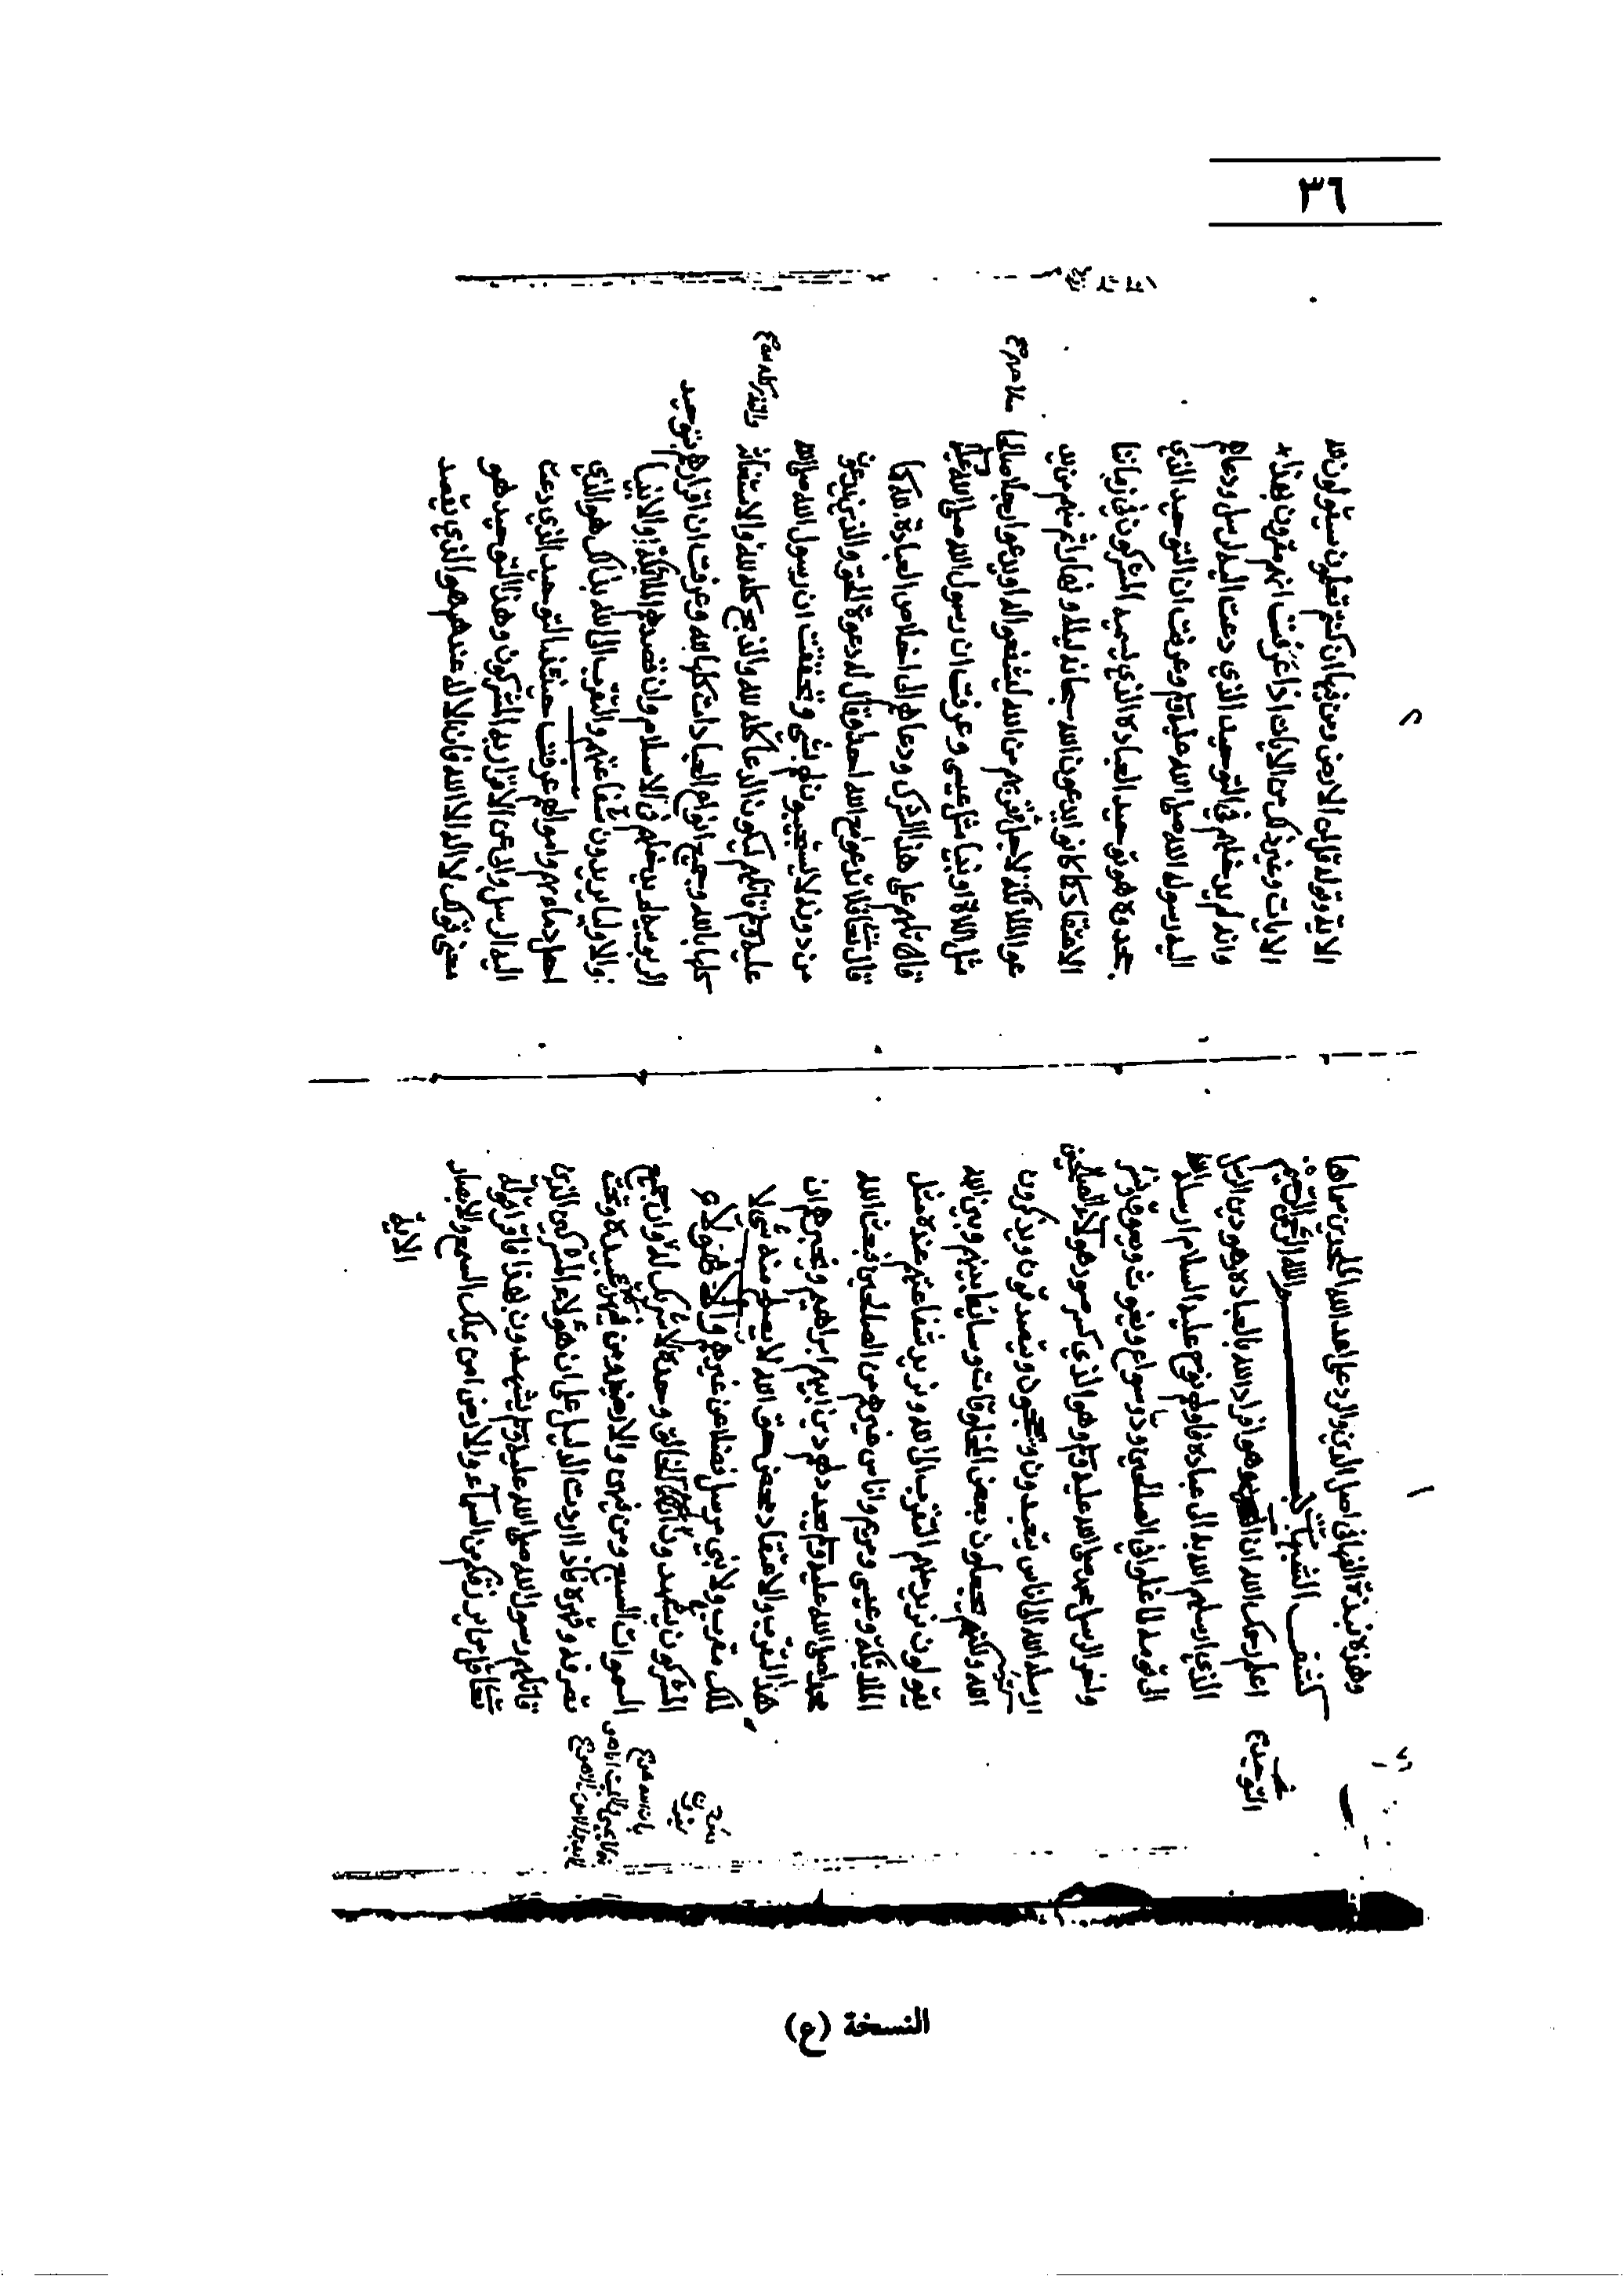 ٣٦
١
وهذه نبذة ألفها في أصل الدين والرد على اعداء الله الملحدين سماها
كشف الشبهات الرحمن الرحيم
اعلم رحمك الله ان التوحيد هو افراد الله بالعبادة وهو دين الرسل
الذي ارسلهم الله به الى عباده فاولهم نوح عليه السلام ارسله الله
الى قومه لما غلوا في الصالحين ود وسواع ويغوث ويعوق ونسر
واخر الرسل محمد صلى الله عليه وسلم وهو الذي كسر صور هؤلاء الصالحين
ارسله الله الى اناس يتعبدون ويحجون ويتصدقون ويذكرون
الله ولكنهم يجعلون بعض المخلوقات وسائط بينهم وبين الله
يقولون نريد منهم التقرب الى الله ونريد شفاعتهم عنده مثل
الملائكة وعيسى ومريم واناس غيرهم من الصالحين فبعث الله
محمدا صلى الله عليه وسلم يجدد لهم دين ابيهم ابراهيم ويخبرهم ان
هذا التقرب والاعتقاد محض حق الله لا يصلح منه شيء لا
لملك مقرب ولا نبي مرسل فضلا عن غيرهم والا فهؤلاء
المشركون يشهدون ان الله هو الخالق وحده لا شريك له وان جميع
السموات السبع ومن فيهن والارضين ومن فيهن عبيده وتحت
تصرفه وقهره فاذا اردت الدليل على ان هؤلاء المشركين الذين
قاتلهم رسول الله صلى الله عليه وسلم يشهدون بهذا فاقرأ قوله
تعالى قل من يرزقكم من السماء والارض امن يملك السمع والابصار
الآية
٢
الآية وقوله قل لمن الارض ومن فيها ان كنتم تعلمون سيقولون لله
الآيات وغير ذلك من الآيات اذا عرفت انهم مقرون بهذا
وانه لم يدخلهم في التوحيد الذي دعت اليه الرسل ودعاهم
اليه رسول الله صلى الله عليه وسلم وعرفت ان التوحيد الذي
جحدوه هو توحيد العبادة الذي يسميه المشركون في زماننا
الاعتقاد كما كانوا يدعون الله سبحانه ليلا ونهارا ثم منهم من يد
عو الملائكة لاجل قربهم من الله ليشفعوا له او يدعو رجلا صالحا
مثل اللات او نبيا مثل عيسى وعرفت ان رسول الله صلى الله عليه
قاتلهم على هذا الشرك ودعاهم الى اخلاص العبادة لله كما
قال تعالى فلا تدعوا مع الله احدا وقال له دعوة الحق والذين يدعون
من دونه لا يستجيبون لهم بشيء وتحققت ان رسول الله صلى الله
عليه وسلم قاتلهم ليكون الدعاء كله لله والذبح كله لله والاستغاثة
كلها بالله وجميع انواع العبادات كلها لله وعرفت ان اقرارهم بتوحيد
الربوبية لم يدخلهم في الاسلام وان قصدهم الملائكة والانبياء
والاولياء يريدون شفاعتهم والتقرب الى الله بذلك هو الذي
احل دماءهم واموالهم عرفت حينئذ التوحيد الذي دعت
اليه الرسل وابى عن الاقرار به المشركون وهذا التوحيد هو
معنى قولك لا اله الا الله فان الاله عندهم هو الذي يقصد
النسخة (ع)